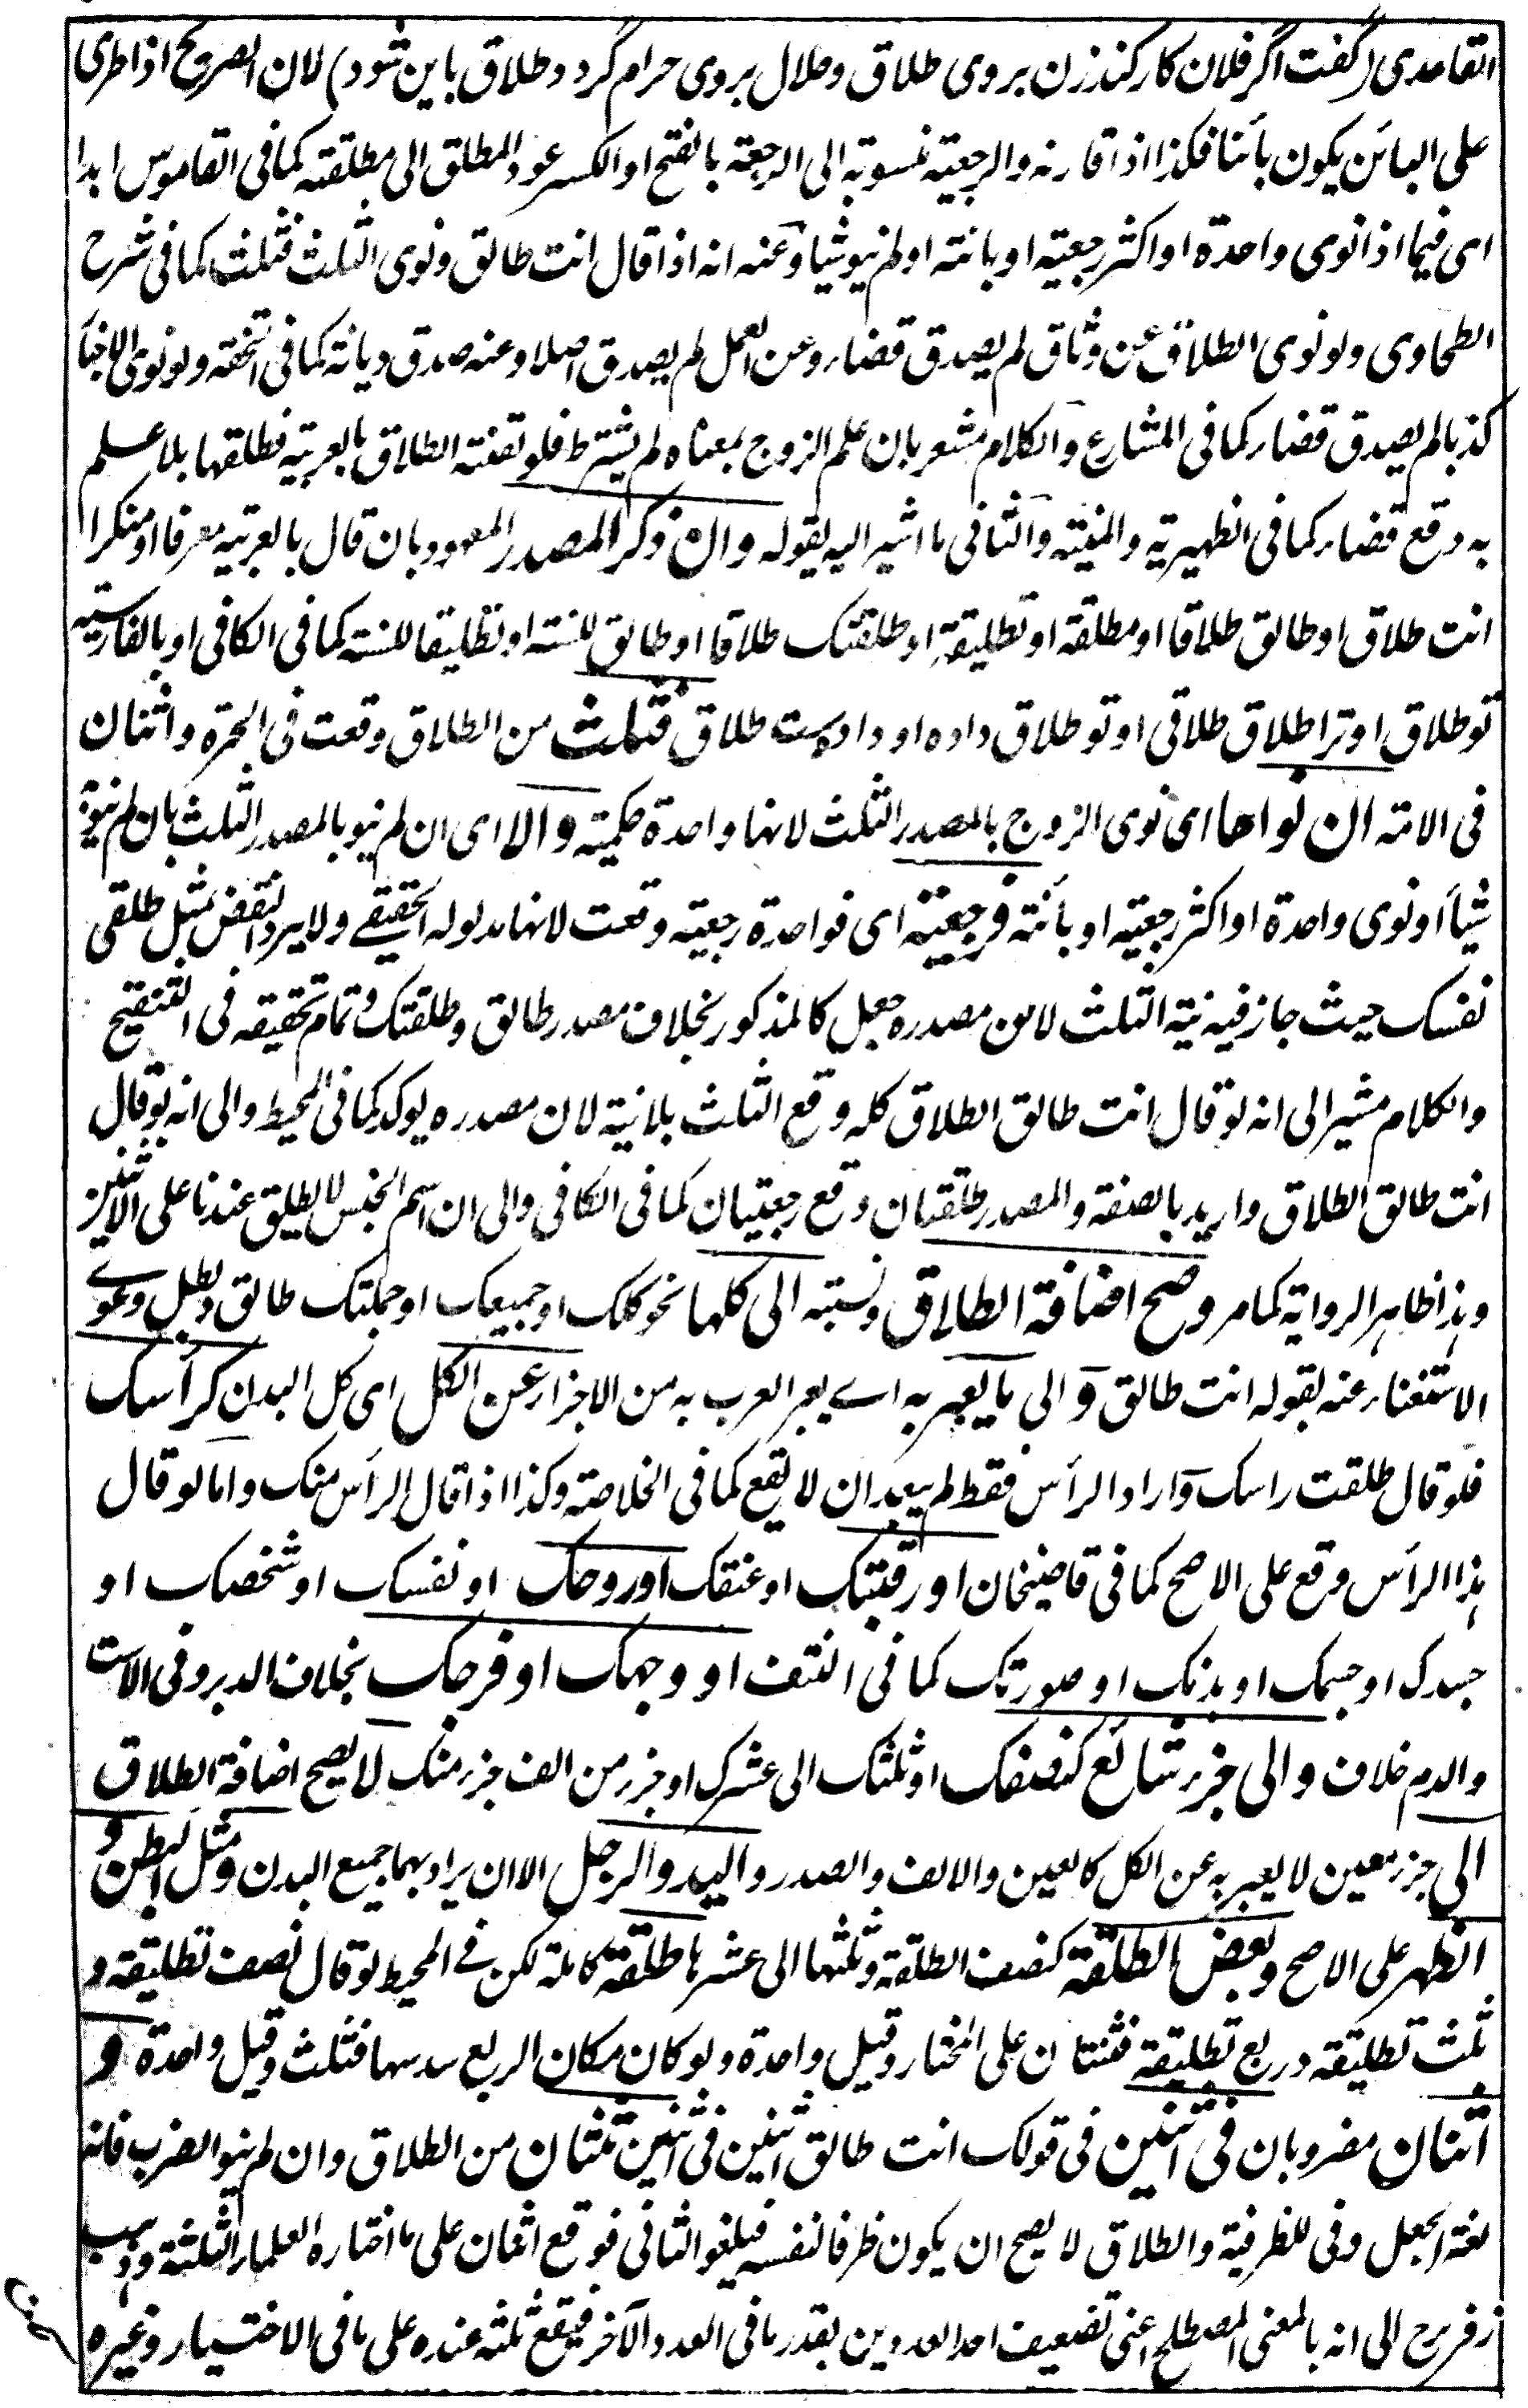 القاعدى (گفت اگر فلان كار كند زن بروى طلاق وحلال بروى حرام گردد وطلاق باين شود) لان الصريح اذا طرى
على البائن يكون بائنا فكذا اذا قارنه والرجعية نسوبة الى الرجعة بالفتح او الكسر عود المطلق الى مطلقته كما فى القاموس ابدا
اى فيما اذا نوى واحدة او اكثر رجعية او بائنة او لم ينو شيا وعنه انه اذا قال انت طالق ونوى الثلث فثلث كما فى شرح
الطحاوى ولو نوى الطلاق عن وثاق لم يصدق قضاء وعن العمل لم يصدق اصلا وعنه صدق ديانة كما فى التحفة ولو نوى الاخبار
كذبا لم يصدق قضاء كما فى المشارع والكلام مشعر بان علم الزوج بمعناه لم يشترط فلو لقنته الطلاق بالعربية فطلقها بلا علم
به وقع قضاء كما فى الظهيرية والمنية والثانى ما اشير اليه بقوله وان ذكر المصدر المعهود بان قال بالعربية معرفا او منكرا
انت طلاق او طالق طلاقا او مطلقة او تطليقة او طلقتك طلاقا او طالق للسنة او تطليقا للسنة كما فى الكافى او بالفارسية
تو طلاق او ترا طلاق طلاقى او تو طلاق داده او دادست طلاق فثلث من الطلاق وقعت فى الحرة واثنان
فى الامة ان نواها اى نوى الزوج بالمصدر الثلث لانها واحدة حكمية والا اى ان لم ينو بالمصدر الثلث بان لم ينو
شيأ او نوى واحدة او اكثر رجعية او بائنة فرجعية اى فواحدة رجعية وقعت لانها مدلوله الحقيقے ولا يرد النقض بمثل طلقى
نفسك حيث جاز فيه نية الثلث لان مصدره جعل كالمذكور بخلاف مصدر طالق وطلقتك وتمام تحقيقه فى التنقيح
والكلام مشير الى انه لو قال انت طالق الطلاق كله وقع الثلث بلا نية لان مصدره يوكد كما فى المحيط والى انه لو قال
انت طالق الطلاق واريد بالصفة والمصدر طلقتان وقع رجعيتان كما فى الكافى والى ان اسم الجنس لا يطلق عندنا على الاثنين
وهذا ظاهر الرواية كما مر وصح اضافة الطلاق ونسبته الى كلها نحو كلك او جميعك او جملتك طالق وبطل دعوے
الاستغناء عنه بقوله انت طالق والى ما يعبر به اے يعبر العرب به من الاجزاء عن الكل اى كل البدن كرأسك
فلو قال طلقت راسك واراد الرأس فقط لم يبعد ان لا يقع كما فى الخلاصة وكذا اذا قال الرأس منك واما لو قال
هذا الرأس وقع على الاصح كما فى قاضيخان او رقبتك او عنقك او روحك او نفسك او شخصك او
جسدك او جسمك او بدنك او صورتك كما فى النتف او وجهك او فرجك بخلاف الدبر وفى الاست
والدم خلاف والى جزء شائع كنصفك او ثلثك الى عشرك او جزء من الف جزء منك لا يصح اضافة الطلاق
الى جزء معين لا يعبر به عن الكل كالعين والانف والصدر واليد والرجل الا ان يراد بهما جميع البدن ومثل البطن و
الظهر على الاصح وبعض الطلقة كنصف الطلقة وثلثها الى عشرها طلقة كاملة لكن فے المحيط لو قال نصف تطليقة و
ثلث تطليقة وربع تطليقة فثنتان على المختار وقيل واحدة ولو كان مكان الربع سدسها فثلث وقيل واحدة و
اثنان مضروبان فى اثنين فى قولك انت طالق اثنين فى اثنين ثنتان من الطلاق وان لم ينو الضرب فانه
لغة الجعل وفى للظرفية والطلاق لا يصح ان يكون ظرفا لنفسه فيلغو الثانى فوقع اثنان على ما اختاره العلماء الثلثة وذهب
زفر رح الى انه بالمعنى المصطلح اعنى تضعيف احد العددين بقدر ما فى العدد الآخر فيقع ثلثة عنده على ما فى الاختيار وغيره